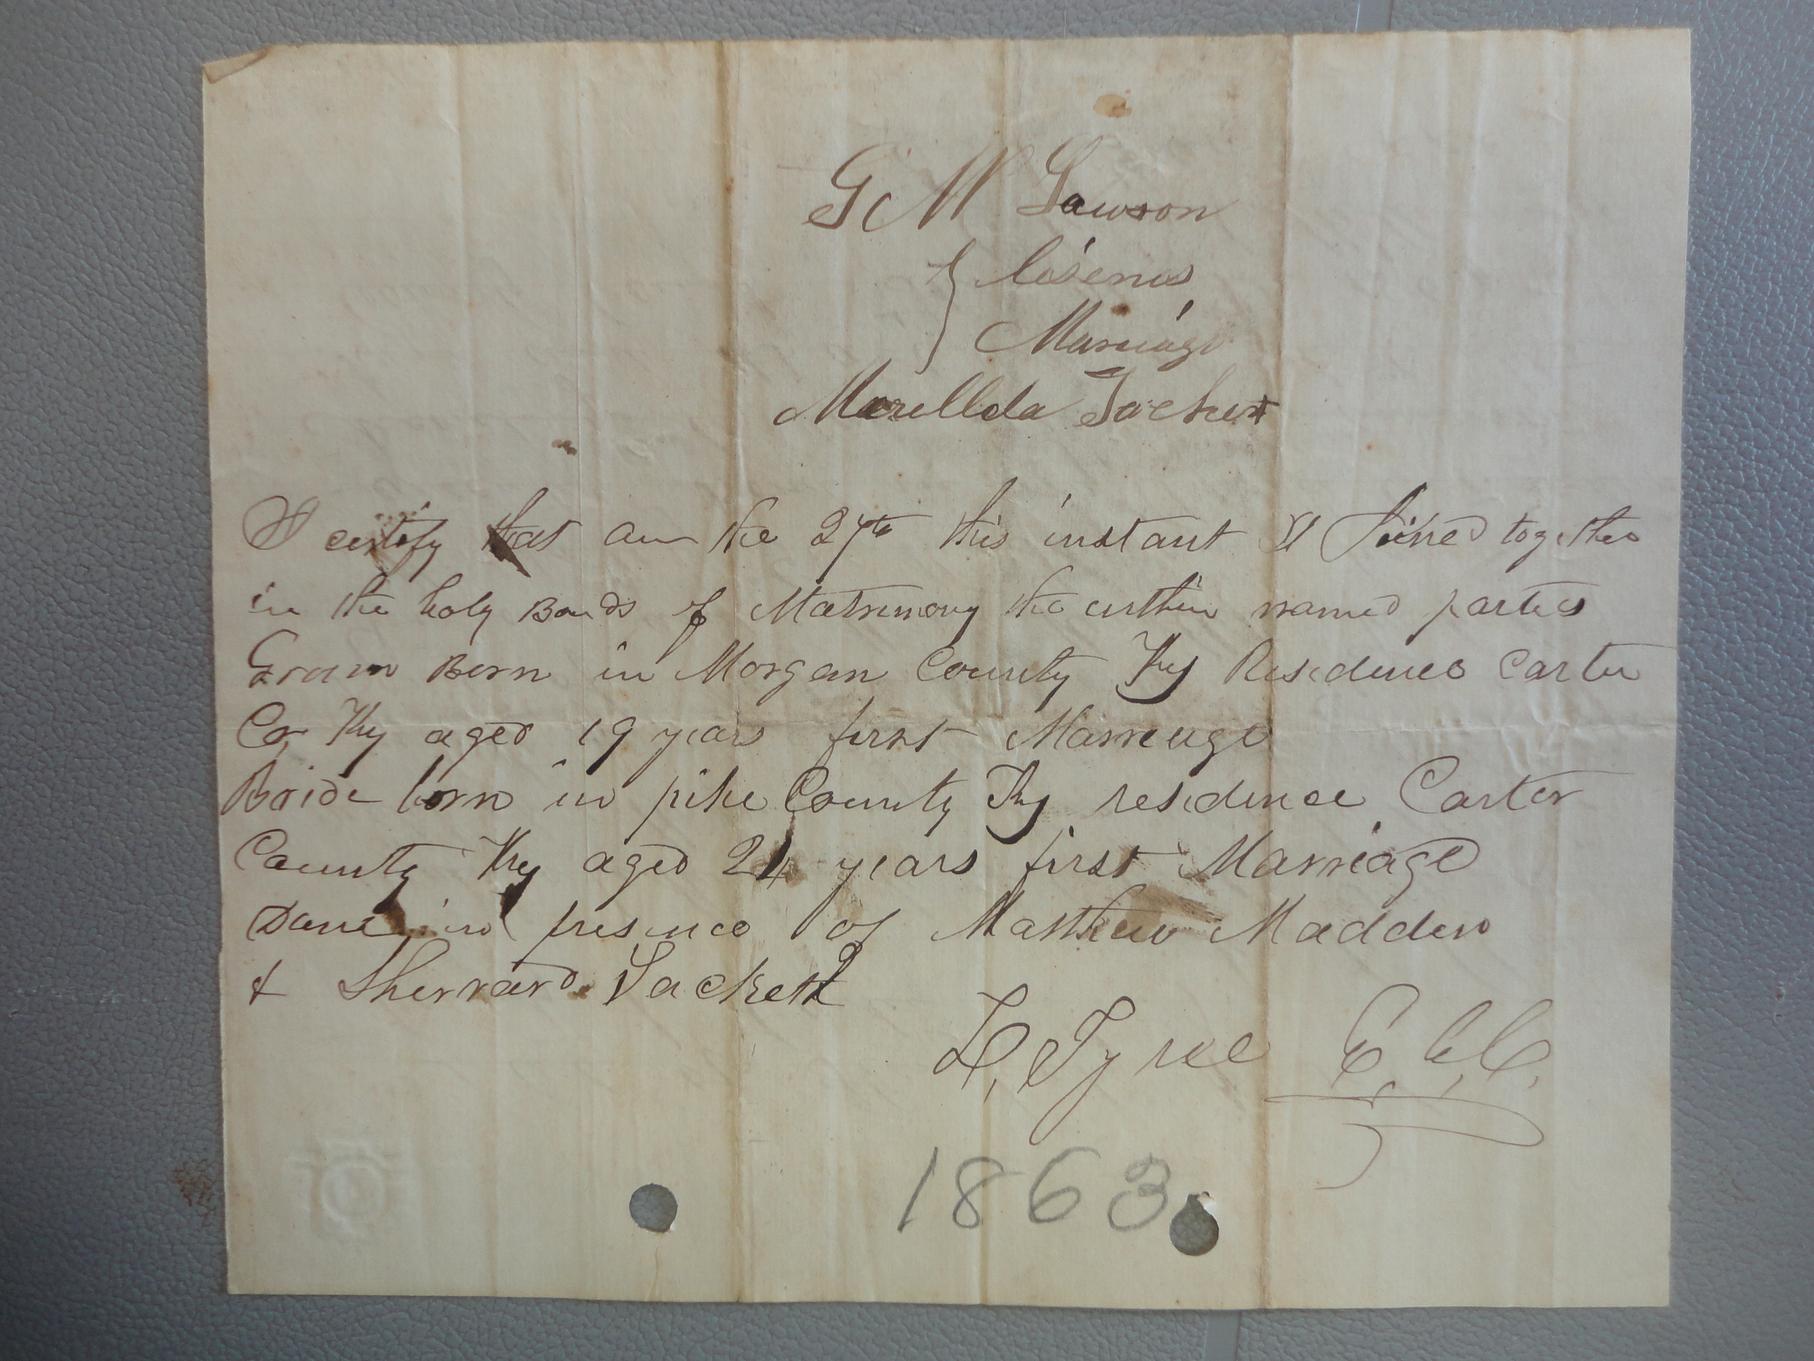 G W Lawson
} lisenes
Marriage
Marellda Tackett
I certify that on the 27th this instant I Joined together
in the holy Bonds of Matrimony the within named parties
Groom Born in Morgan County Ky Residence Carter
Co Ky aged 19 years first Marriage
Bride born in pike County Ky residence Carter
County Ky aged 24 years first Marriage
Done in presence of Matthew Madden
& Sherrard Tackett
L, Tyree
1863